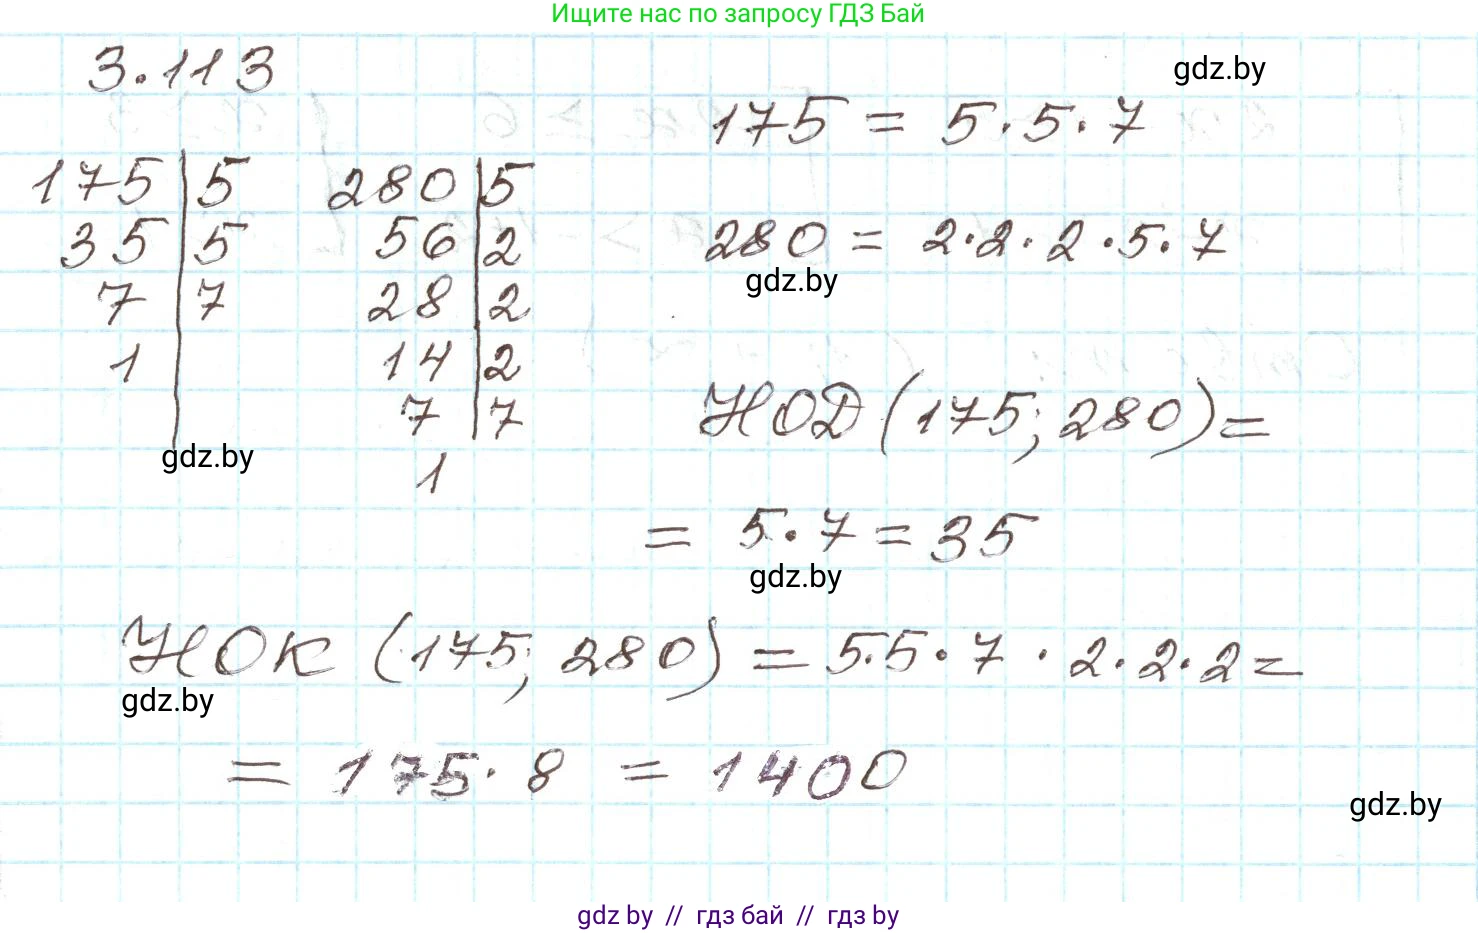 Ищите нас по запросу ГДЗ Бай
3.113
gdz.by
175 = 5·5·7
175 | 5
35 | 5
7 | 7
1
280 | 5
56 | 2
28 | 2
14 | 2
7 | 7
1
280 = 2·2·2·5·7
gdz.by
НОД (175; 280) =
gdz.by
= 5·7 = 35
gdz.by
НОК (175; 280) = 5·5·7·2·2·2 =
gdz.by
= 175·8 = 1400
gdz.by
gdz by // гдз бай // гдз by